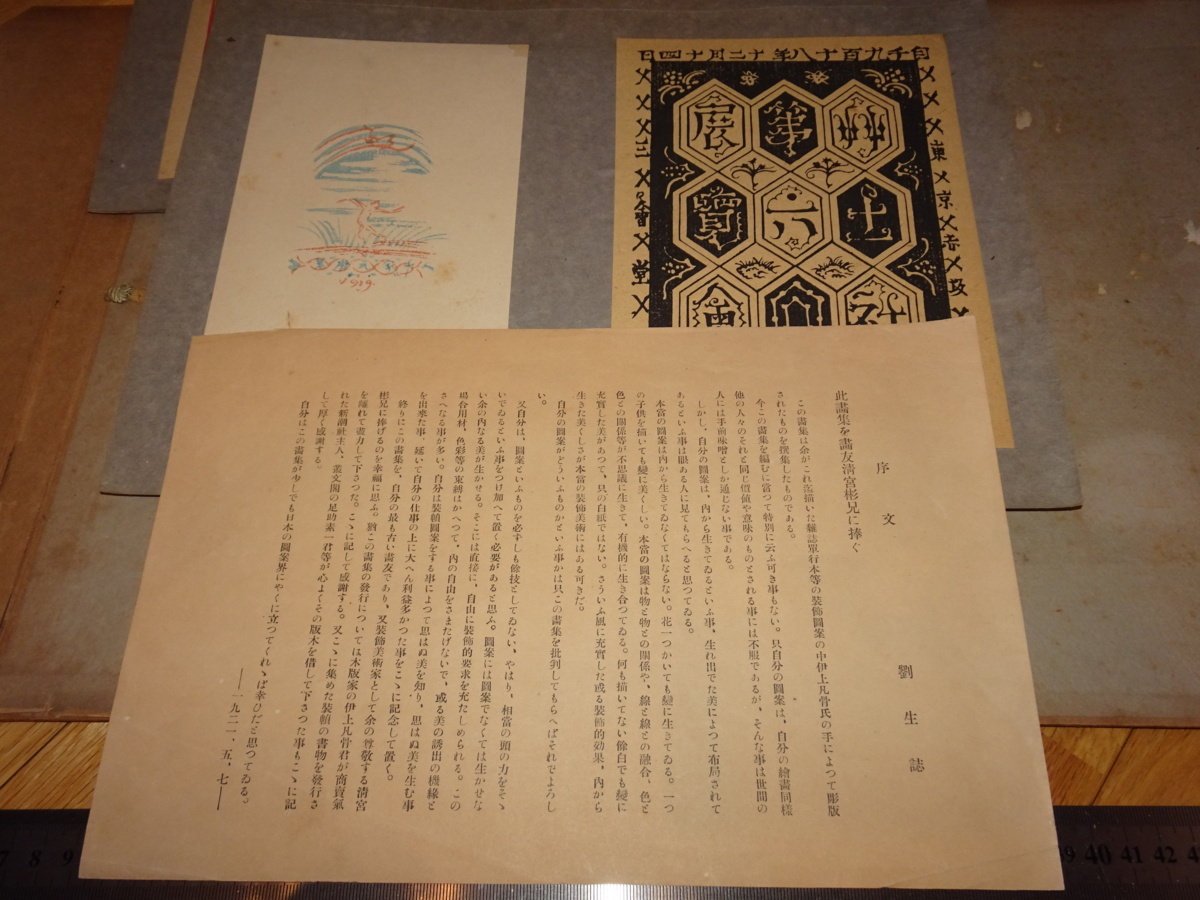 自千九百十八年十二月十四日
東京赤坂
三會堂
草土社
第六回
展覽會
1919.
序文
劉生誌
此畵集を畵友淸宮彬兄に捧ぐ
この畵集は余がこれ迄描いた雜誌單行本等の裝飾圖案の中伊上凡骨氏の手によつて彫版
されたものを撰集したものである。
今この畵集を編むに當つて特別に云ふ可き事もない。只自分の圖案は、自分の繪畵同樣
他の人々のそれと同じ價値や意味のものとされる事には不服であるが、そんな事は世間の
人には手前味噌としか通じない事である。
しかし、自分の圖案は、内から生きてゐるといふ事、生れ出でた美によつて布局されて
あるといふ事は眼ある人に見てもらへると思つてゐる。
本當の圖案は内から生きてゐなくてはならない。花一つかいても變に生きてゐる。一つ
の子供を描いても變に美くしい。本當の圖案は物と物との關係や、線と線との融合、色と
色との關係等が不思議に生きて、有機的に生き合つてゐる。何も描いてない餘白でも變に
充實した美があつて、只の白紙ではない。さういふ風に充實した或る裝飾的効果、内から
生きた美くしさが本當の裝飾美術にはある可きだ。
自分の圖案がどういふものかといふ事かは只、この畵集を批判してもらへばそれでよろし
い。
又自分は、圖案といふものを必ずしも餘技としてゐない、やはり、相當の頭の力をそゝ
いでゐるといふ事をつけ加へて置く必要があると思ふ。圖案には圖案でなくては生かせな
い余の内なる美が生かせる。そこには直接に、自由に裝飾的要求を充たしめられる。この
場合用材、色彩等の束縛はかへつて、内の自由をさまたげないで、或る美の誘出の機緣と
さへなる事が多い。自分は裝幀圖案をする事によつて思はぬ美を知り、思はぬ美を生む事
を出來た事、延いて自分の仕事の上に大へん利益多かつた事をこゝに記念して置く。
終りにこの畵集を、自分の最も古い畵友であり、又裝飾美術家として余の尊敬する淸宮
彬兄に捧げるのを幸福に思ふ。猶この畵集の發行については木版家の伊上凡骨君が商賣氣
を離れて盡力して下さつた。こゝに記して感謝する。又こゝに集めた裝幀の書物を發行さ
れた新潮社主人、叢文閣の足助素一君等が心よくその版木を借して下さつた事もこゝに記
して厚く感謝する。
自分はこの畵集が少しでも日本の圖案界にやくに立つてくれゝば幸ひだと思つてゐる。
──一九二二、五、七──
7 8 9
39 40 41 42